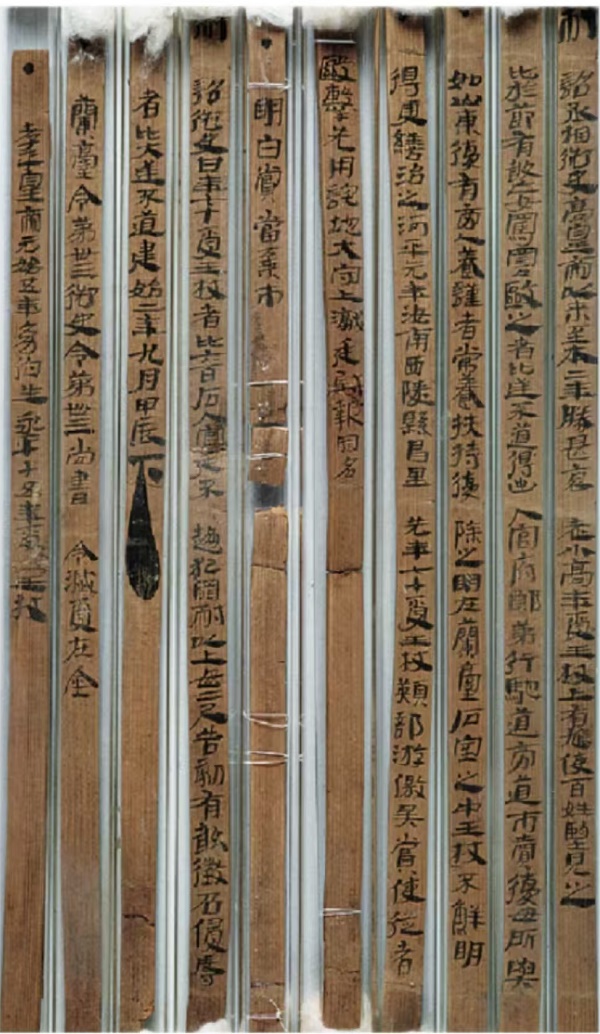 制詔丞相御史高皇帝以來至本二年勝甚哀老小高年受王杖上有鳩使百姓望見之
比於節有敢妄罵詈毆之者比逆不道得出入官府郎第行馳道旁道市賣復毋所與
如山東復有旁人養謹者常養扶持復除之明在蘭臺石室之中王杖不鮮明
得更繕治之河平元年汝南西陵縣昌里先年七十受王杖熲部游徼吳賞使從者
毆擊先用詫地大守上讞廷尉報罪名
明白賞當棄市
制詔御史曰年七十受王杖者比六百石入官廷不趨犯罪耐以上毋二尺告劾有敢徵召侵辱
者比大逆不道建始二年九月甲辰下
蘭臺令第卅三御史令第卌三尚書令滅受在金
孝平皇帝元始五年幽伯生永平十五年受王杖